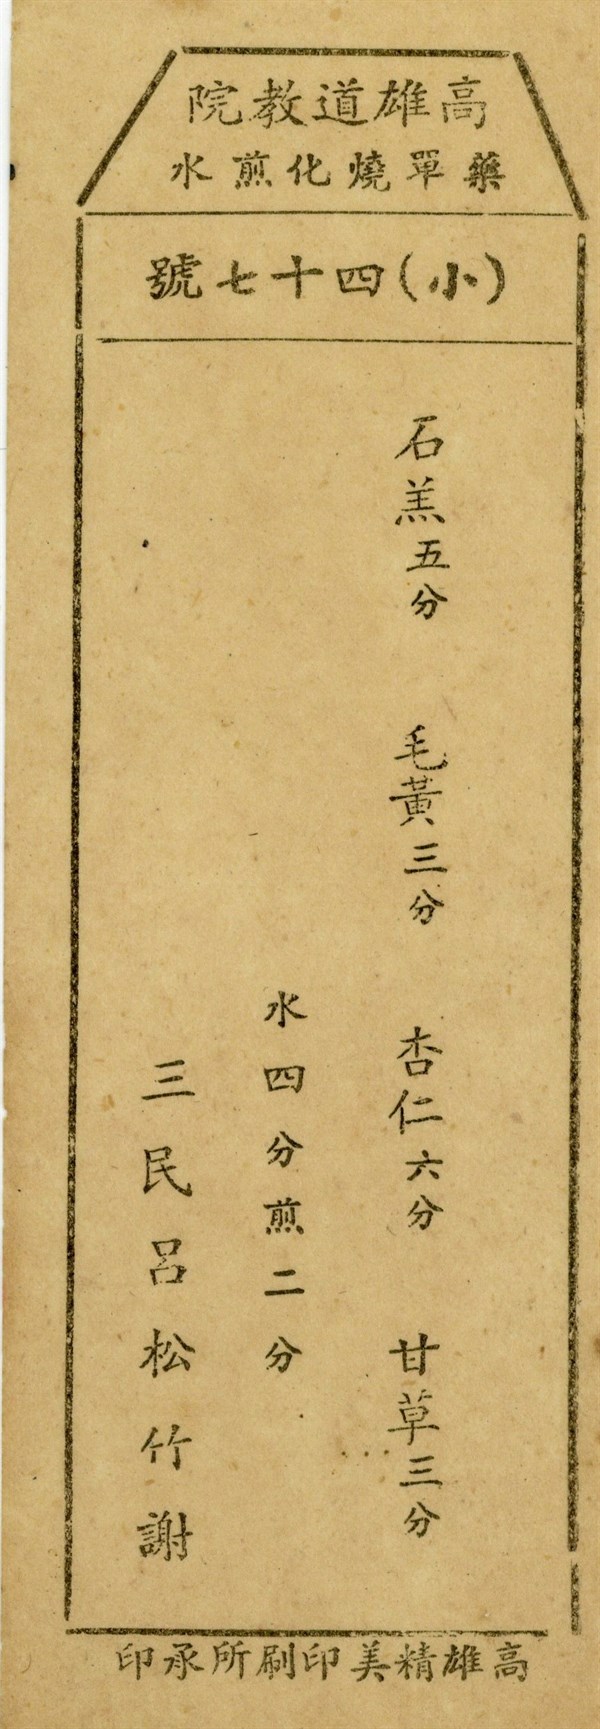 高雄道教院
藥單燒化煎水
(小)四十七號
石羔五分 毛黃三分 杏仁六分 甘草三分
水四分煎二分
三民呂松竹謝
高雄精美印刷所承印